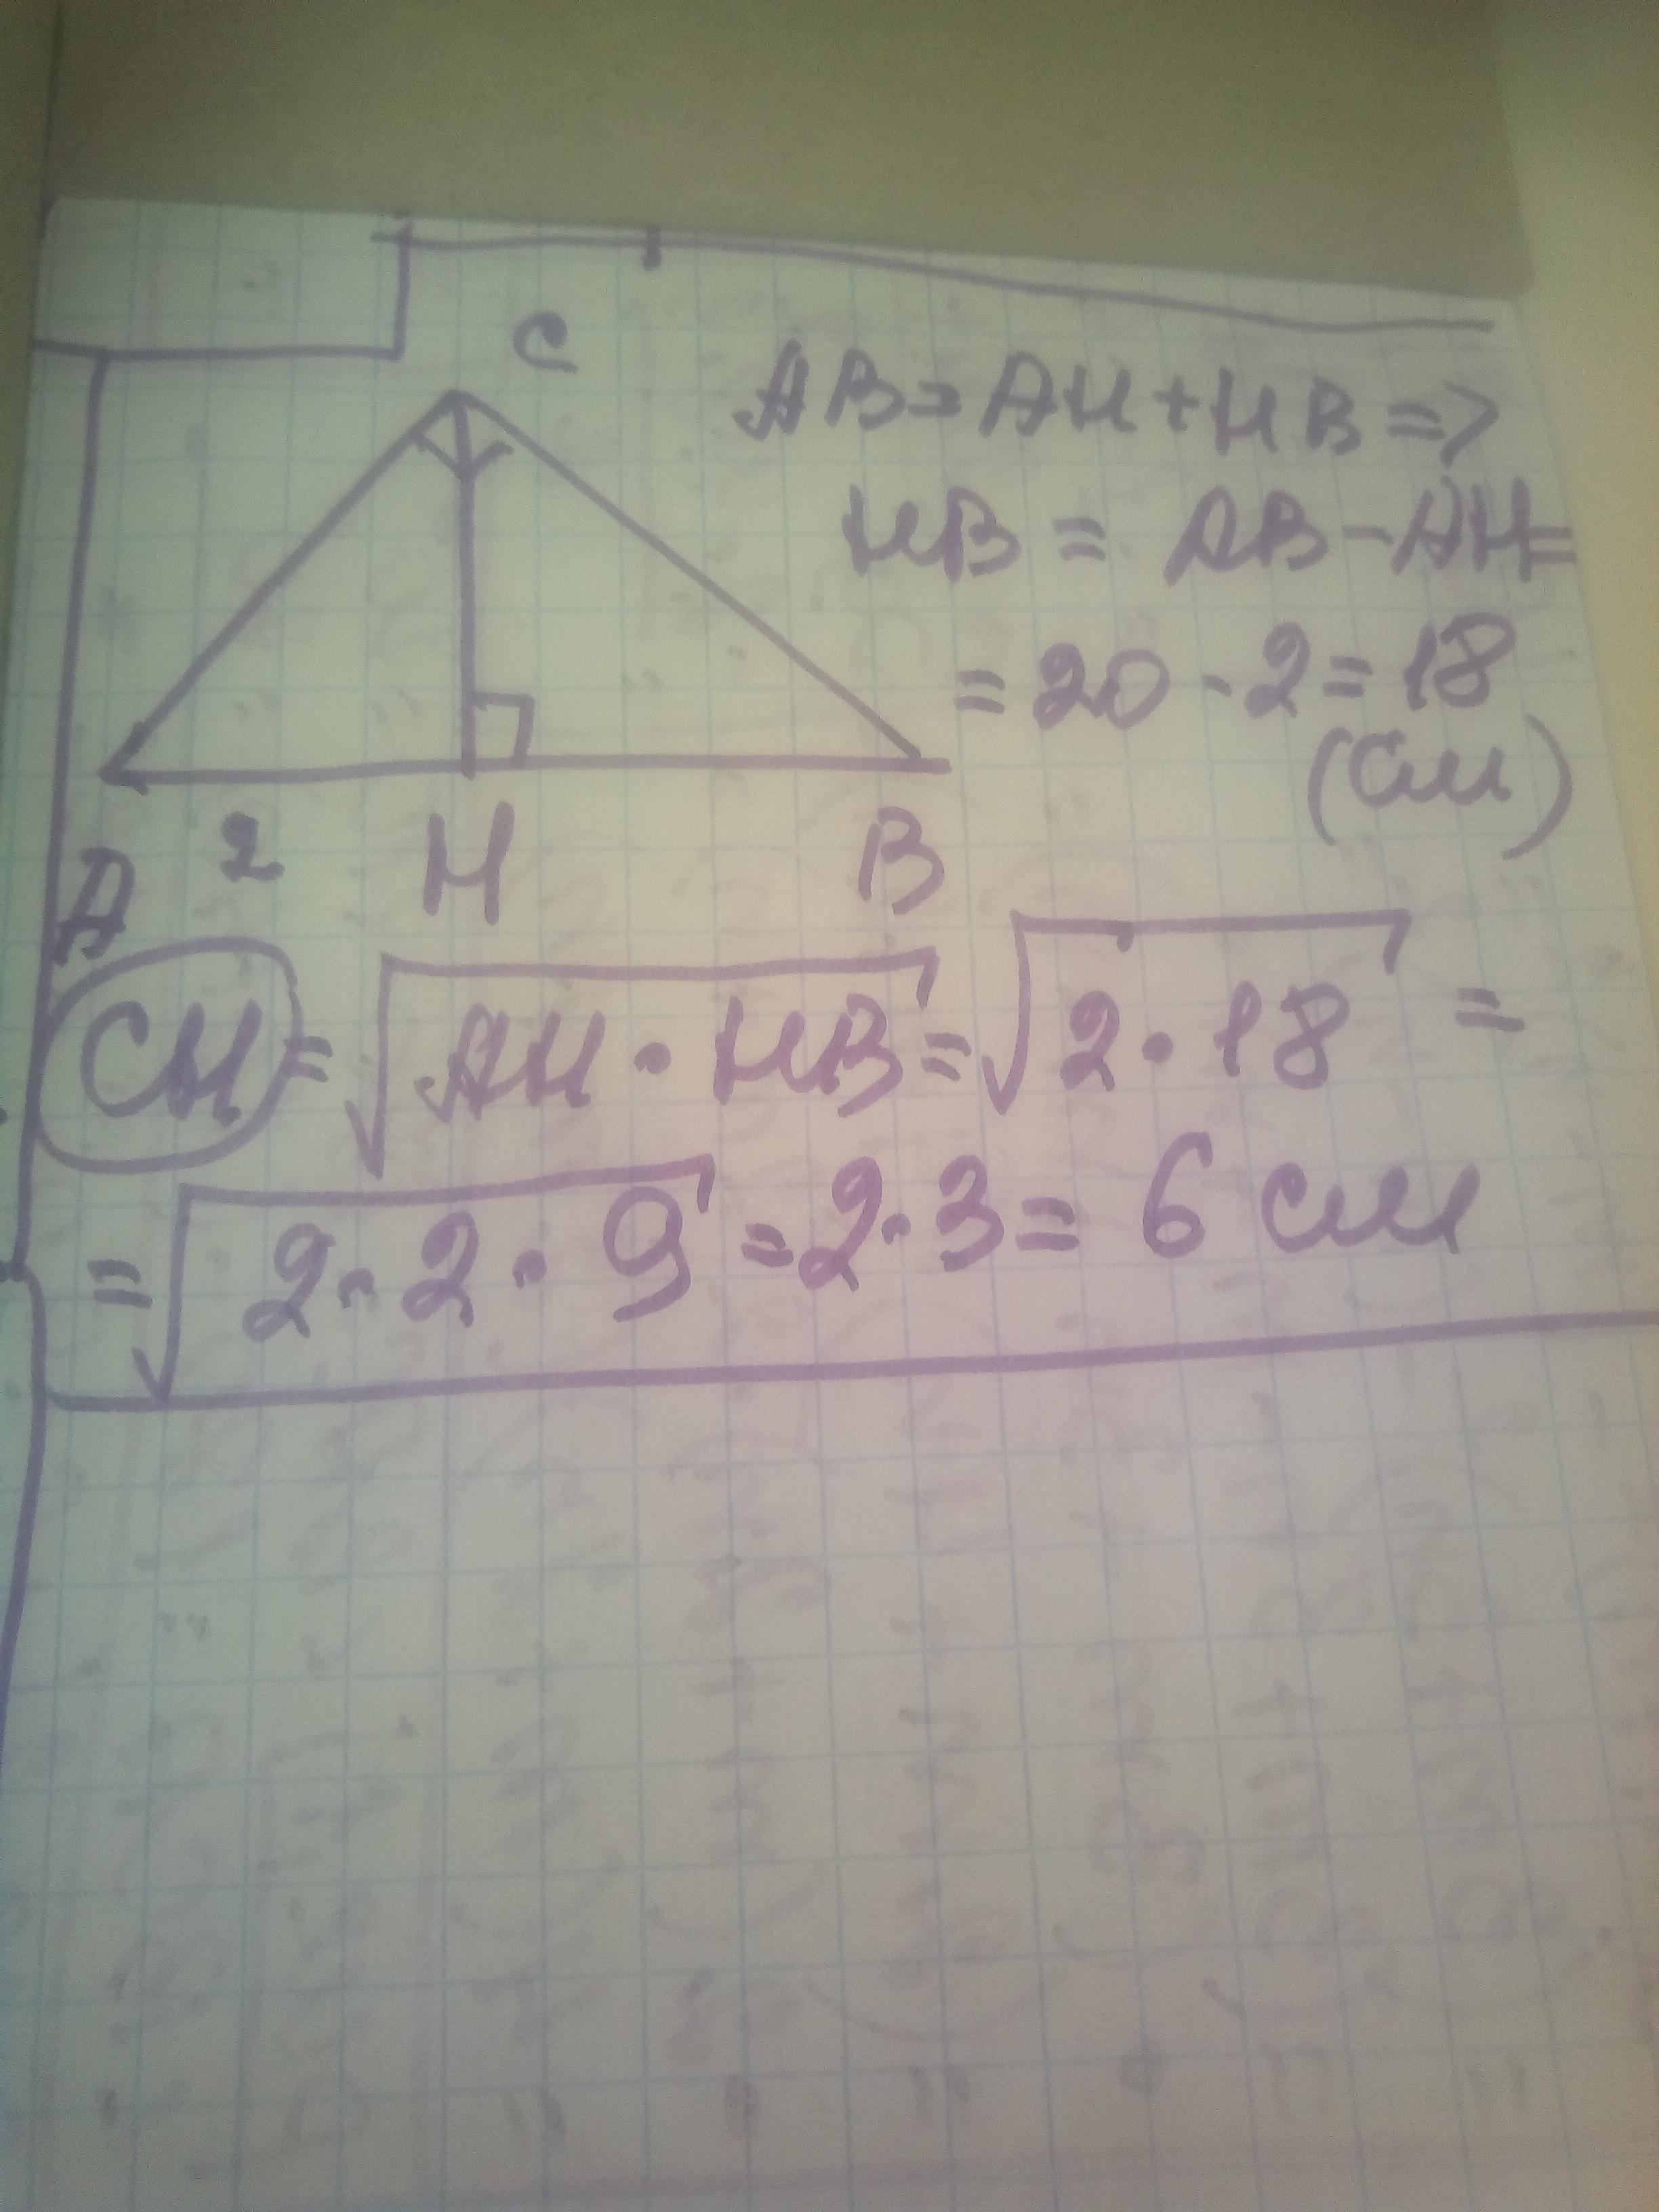 C
AB=AH+HB=>
HB = AB-AH=
=20-2=18
(см)
A 2 H B
CH=√AH·HB=√2·18 =
=√2·2·9=2·3=6 см